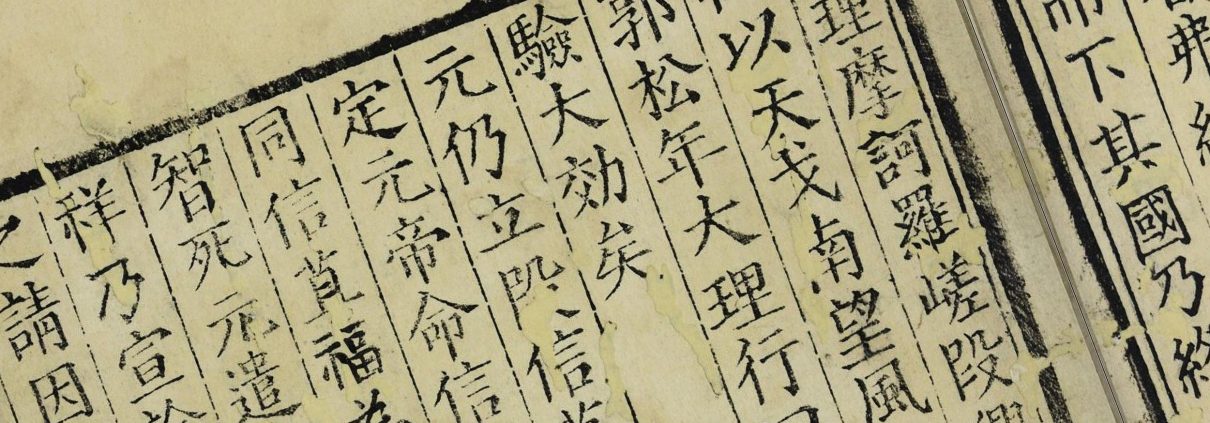 弗
而下其國乃
理摩訶羅嵯段
以天戈南望風
郭松年大理行
驗大効矣
元仍立段信苴
定元帝命信
同信苴福
智死元遣
祥乃宣
之請因